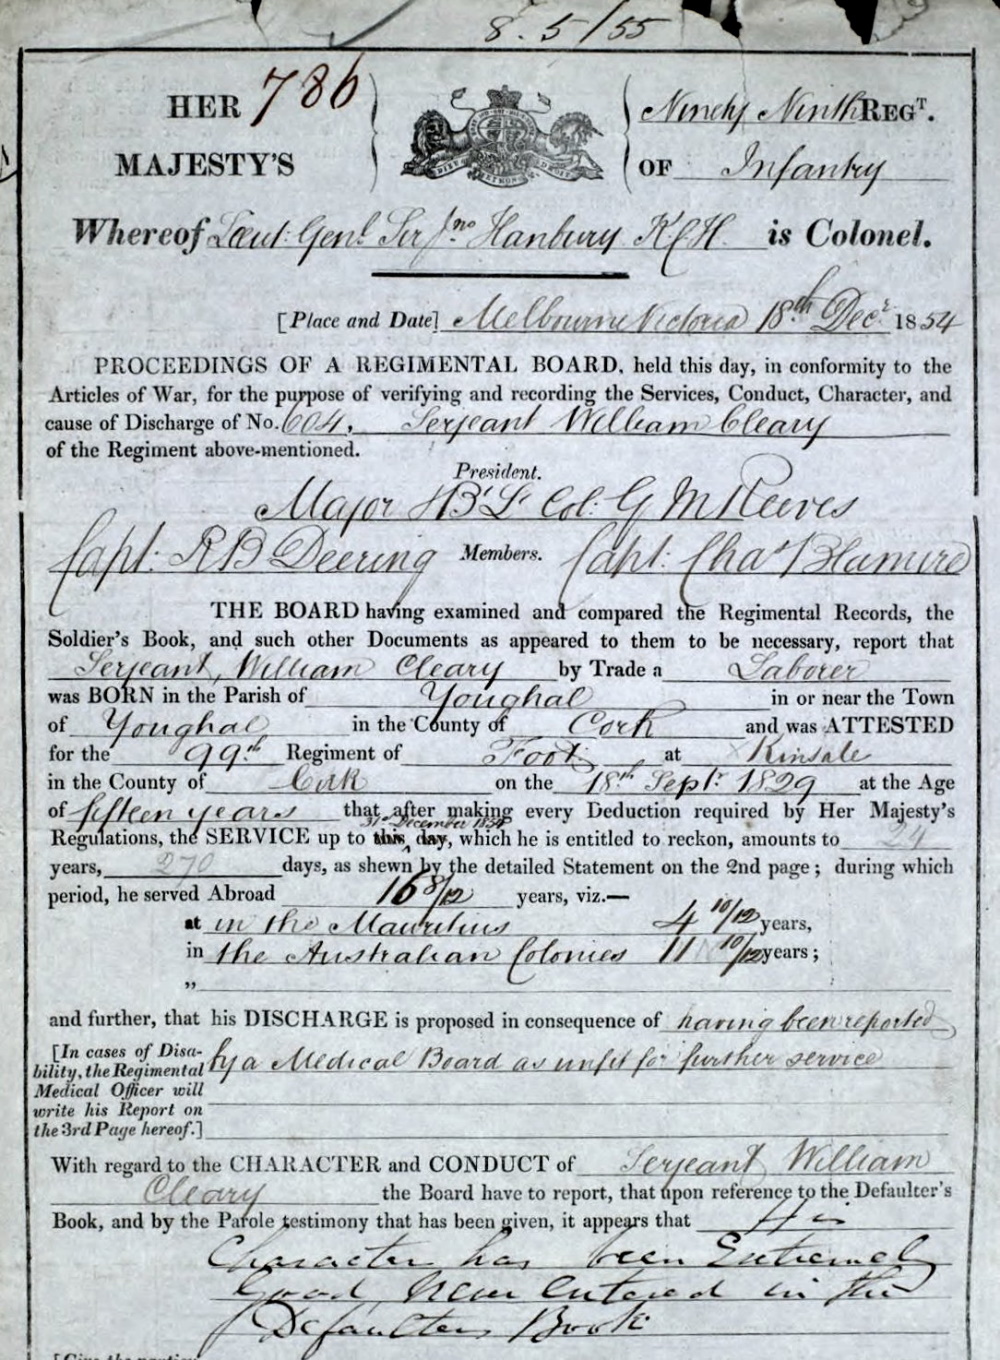 8. 5/55
HER 786 Ninety Ninth REGT.
MAJESTY'S OF Infantry
Whereof Lieut: Genl. Sir Jno Hanbury KCH is Colonel.
[Place and Date] Melbourne Victoria 18th Decr 1854
PROCEEDINGS OF A REGIMENTAL BOARD, held this day, in conformity to the
Articles of War, for the purpose of verifying and recording the Services, Conduct, Character, and
cause of Discharge of No. 604, Serjeant William Cleary
of the Regiment above-mentioned.
President.
Major & Bt Lt Col: G M Reeves
Capt: R B Deering Members. Capt: Chas Blamire
THE BOARD having examined and compared the Regimental Records, the
Soldier's Book, and such other Documents as appeared to them to be necessary, report that
Serjeant, William Cleary by Trade a Laborer
was BORN in the Parish of Youghal in or near the Town
of Youghal in the County of Cork and was ATTESTED
for the 99th Regiment of Foot at Kinsale
in the County of Cork on the 18th Septr. 1829 at the Age
of fifteen years that after making every Deduction required by Her Majesty's
31st December 1854
Regulations, the SERVICE up to this day, which he is entitled to reckon, amounts to 24
years, 270 days, as shewn by the detailed Statement on the 2nd page; during which
period, he served Abroad 16 8/12 years, viz.—
at in the Mauritius 4 10/12 years,
in the Australian Colonies 11 10/12 years;
„
and further, that his DISCHARGE is proposed in consequence of having been reported
[In cases of Disa- by a Medical Board as unfit for further service
bility, the Regimental
Medical Officer will
write his Report on
the 3rd Page hereof.]
With regard to the CHARACTER and CONDUCT of Serjeant William
Cleary the Board have to report, that upon reference to the Defaulter's
Book, and by the Parole testimony that has been given, it appears that His
Character has been Extremely
Good Never Entered in the
Defaulters Book